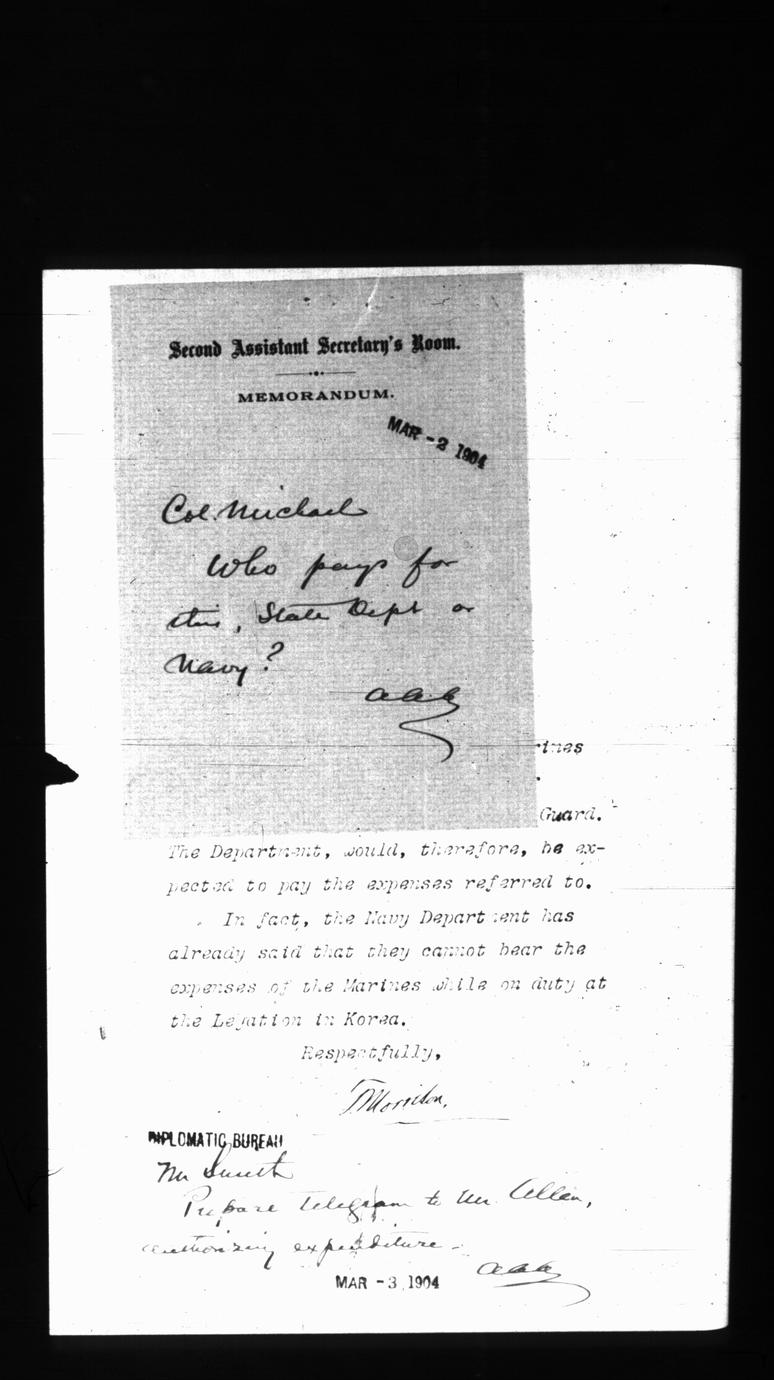 Second Assistant Secretary's Room.
MEMORANDUM.
MAR -2 1904
Col. Michael
Who pays for
this, State Dept or
Navy?
aaa
rines
Guard.
The Department, would, therefore, be ex-
pected to pay the expenses referred to.
In fact, the Navy Department has
already said that they cannot bear the
expenses of the Marines while on duty at
the Legation in Korea.
Respectfully,
Morrison.
DIPLOMATIC BUREAU
Mr Smith
Prepare telegram to Mr. Allen,
authorizing expenditure.
aaa
MAR -3 1904